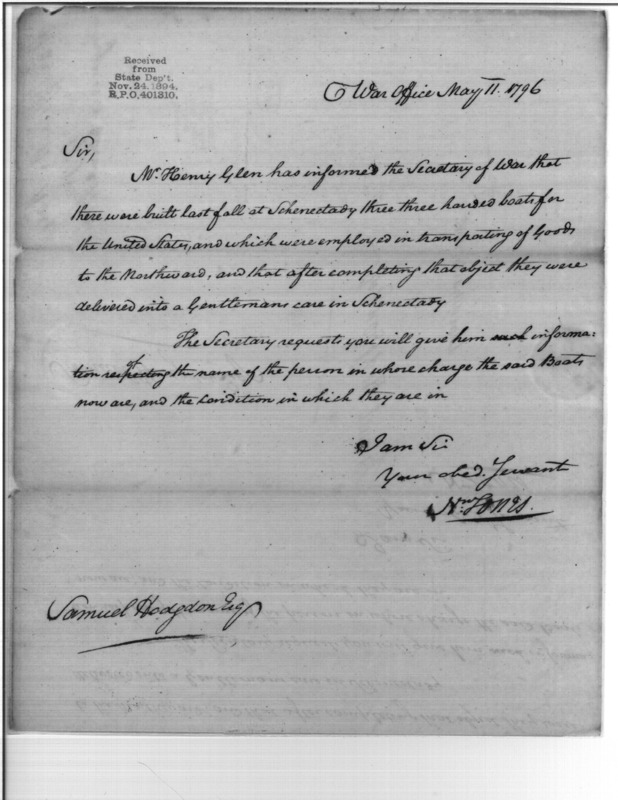 Received
from
State Dep't.
Nov. 24. 1894.
R.P.O. 401310.
War Office May 11. 1796
Sir,
Mr. Henry Glen has informed the Secretary of War that
there were built last fall at Schenectady three three handed boats for
the United States, and which were employed in transporting of Goods
to the Northward, and that after completing that object they were
delivered into a Gentlemans care in Schenectady
The Secretary requests you will give him such informa-
tion respecting the name of the person in whose charge the said Boats
now are, and the condition in which they are in
I am Sir
Your obed. Servant
Nn. Jones.
Samuel Hodgdon Esq